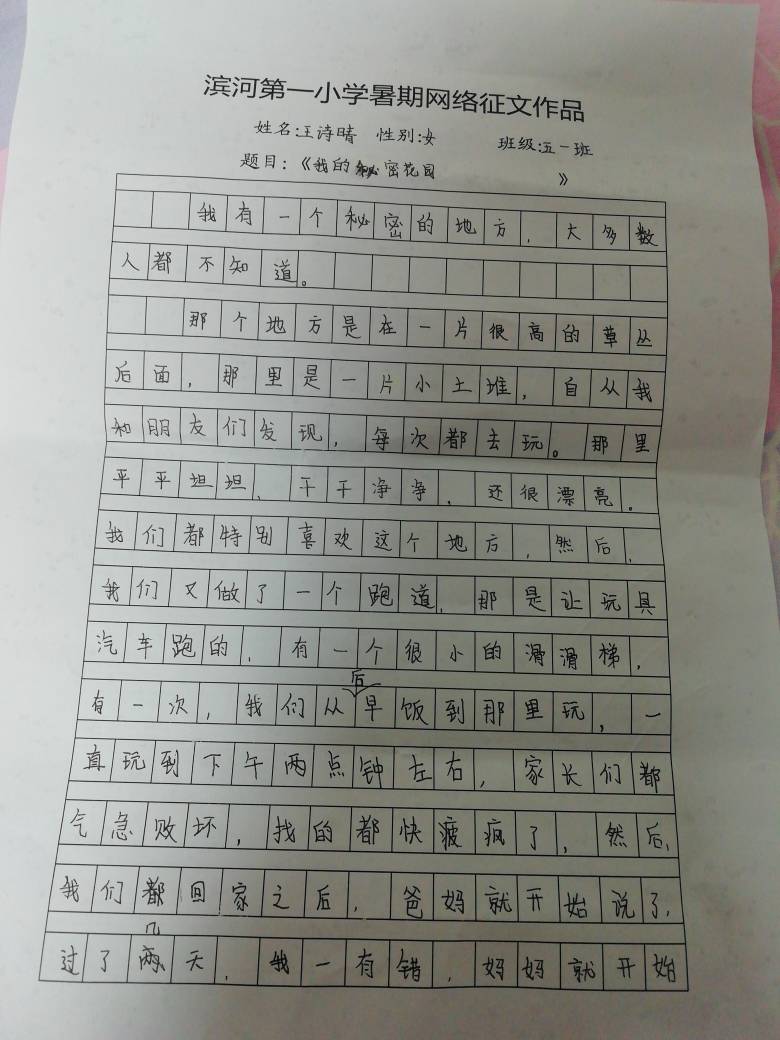 滨河第一小学暑期网络征文作品
姓名:王诗晴 性别:女 班级:五一班
题目:《我的秘密花园》
我有一个秘密的地方，大多数
人都不知道。
那个地方是在一片很高的草丛
后面，那里是一片小土堆，自从我
和朋友们发现，每次都去玩。那里
平平坦坦、干干净净、还很漂亮。
我们都特别喜欢这个地方，然后，
我们又做了一个跑道，那是让玩具
汽车跑的，有一个很小的滑滑梯，
后
有一次，我们从早饭到那里玩，一
直玩到下午两点钟左右，家长们都
气急败坏，找的都快疲疯了，然后，
我们都回家之后，爸妈就开始说了，
几
过了两天，我一有错，妈妈就开始